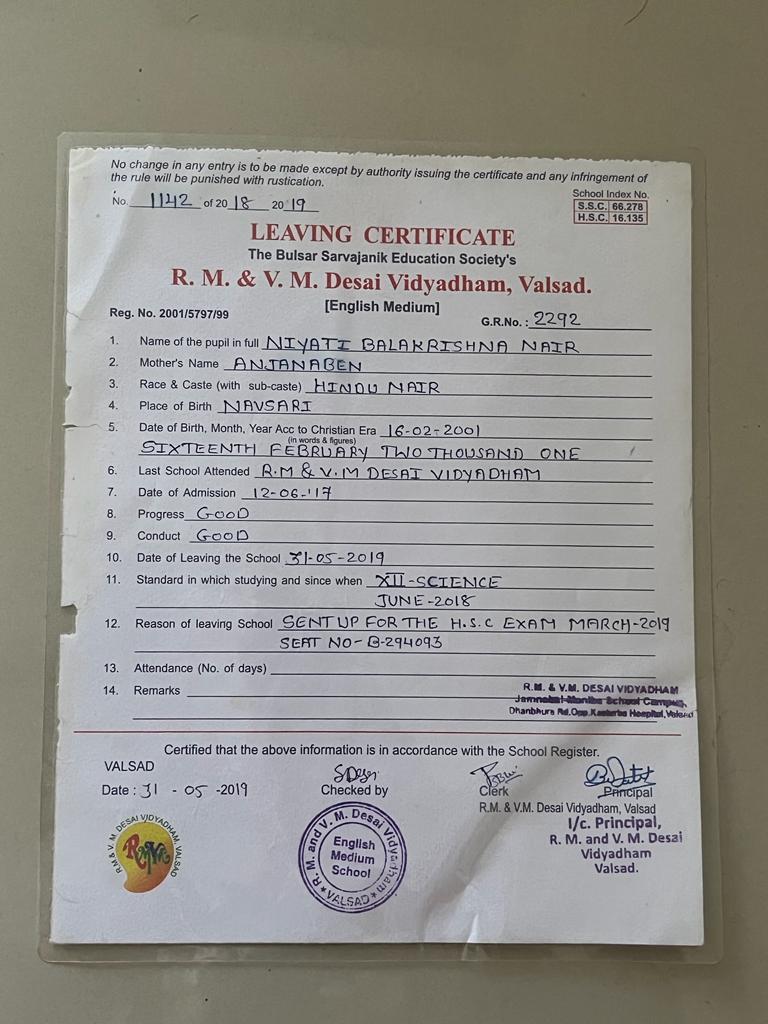 No change in any entry is to be made except by authority issuing the certificate and any infringement of
the rule will be punished with rustication.
No. 1142 of 20 18 20 19
School Index No.
S.S.C. 66.278
H.S.C. 16.135
LEAVING CERTIFICATE
The Bulsar Sarvajanik Education Society's
R. M. & V. M. Desai Vidyadham, Valsad.
[English Medium]
Reg. No. 2001/5797/99
G.R.No.: 2292
1. Name of the pupil in full NIYATI BALAKRISHNA NAIR
2. Mother's Name ANJANABEN
3. Race & Caste (with sub-caste) HINDU NAIR
4. Place of Birth NAVSARI
5. Date of Birth, Month, Year Acc to Christian Era 16-02-2001
(in words & figures)
SIXTEENTH FEBRUARY TWO THOUSAND ONE
6. Last School Attended R.M & V.M DESAI VIDYADHAM
7. Date of Admission 12-06-'17
8. Progress GOOD
9. Conduct GOOD
10. Date of Leaving the School 31-05-2019
11. Standard in which studying and since when XII-SCIENCE
JUNE-2018
12. Reason of leaving School SENT UP FOR THE H.S.C EXAM MARCH-2019
SEAT NO-B-294093
13. Attendance (No. of days)
14. Remarks
R.M. & V.M. DESAI VIDYADHAM
Jamnabai-Maniba School Campus,
Dhanbhura Rd.Opp.Kasturba Hospital,Valsad
Certified that the above information is in accordance with the School Register.
VALSAD
Date : 31 - 05 -2019
Checked by
Clerk
Principal
R.M. & V.M. Desai Vidyadham, Valsad
I/c. Principal,
R. M. and V. M. Desai
Vidyadham
Valsad.
R.M & V. M. DESAI VIDYADHAM, VALSAD
RMVM
R. M. and V. M. Desai Vidyadham
English
Medium
School
VALSAD